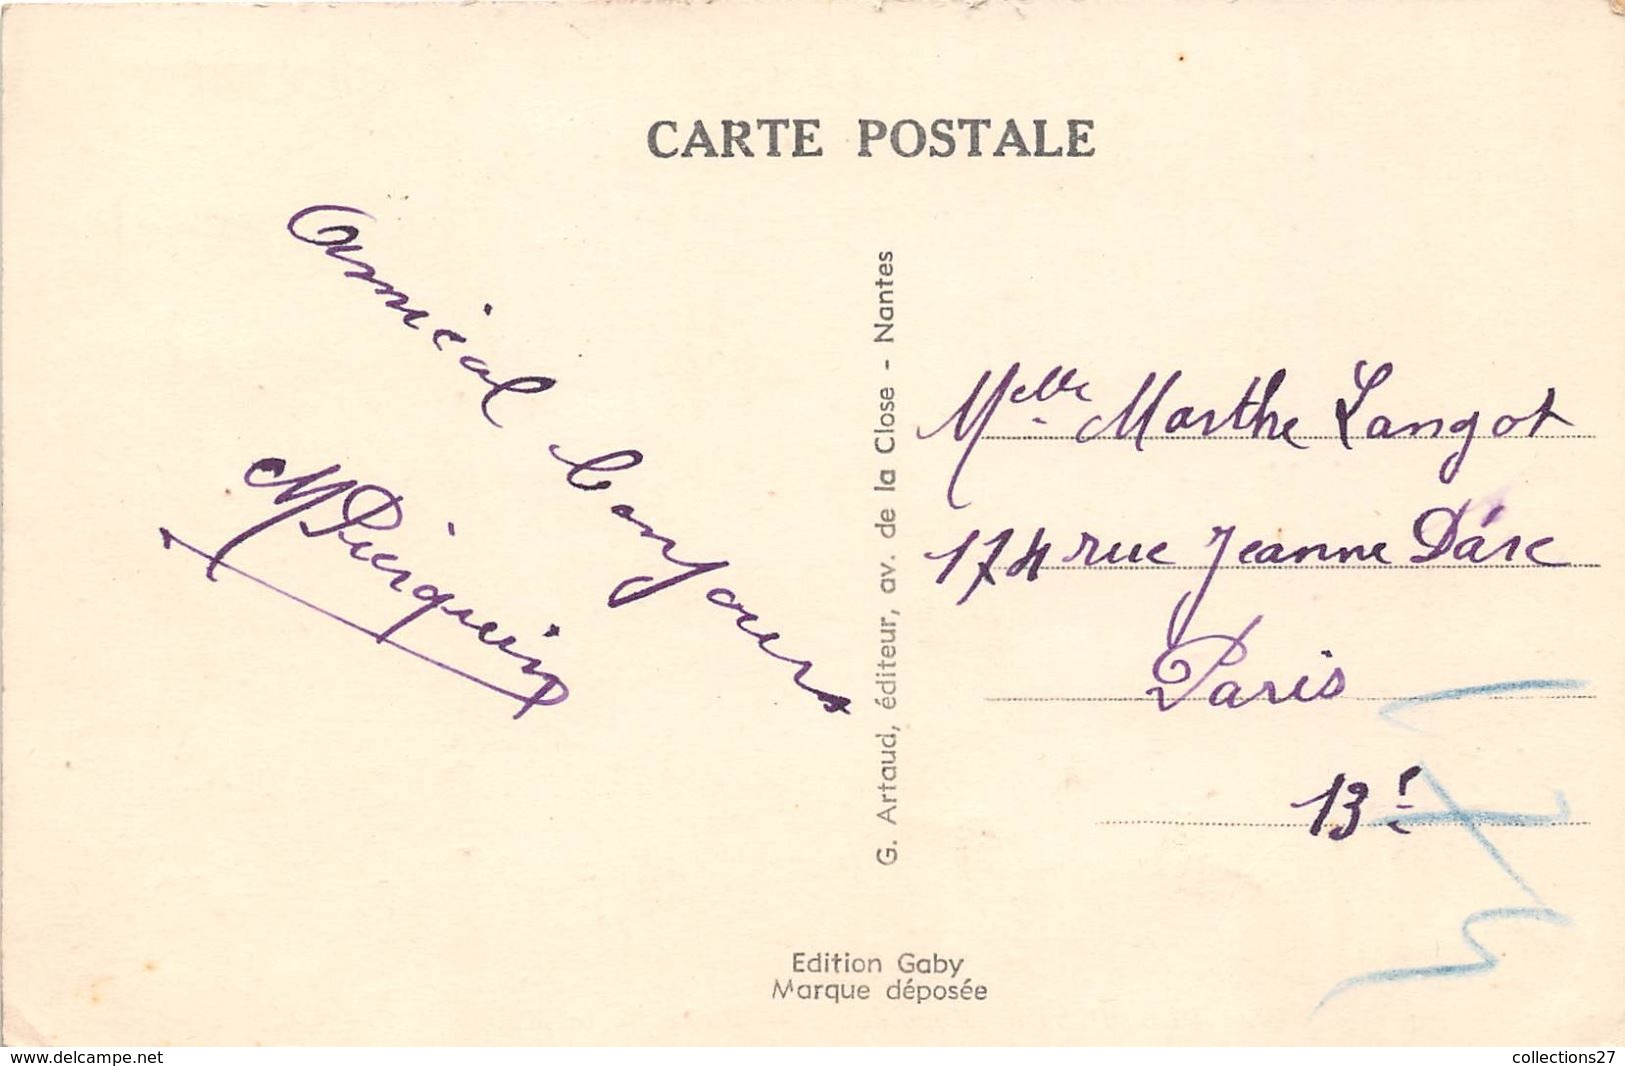 CARTE POSTALE
Amical bonjour
M Pierquin
G. Artaud, éditeur, av. de la Close - Nantes
Melle Marthe Langot
174 rue Jeanne D'arc
Paris
13e
Edition Gaby
Marque déposée
www.delcampe.net
collections27